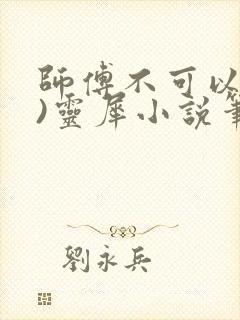 師傅不可以
)靈犀小說筆
劉永兵